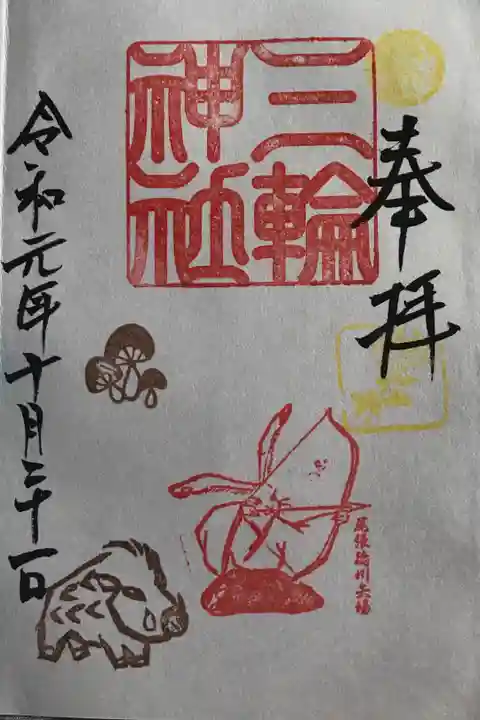 奉拝
三輪
神社
尾張桜川矢場
令和元年十月三十一日